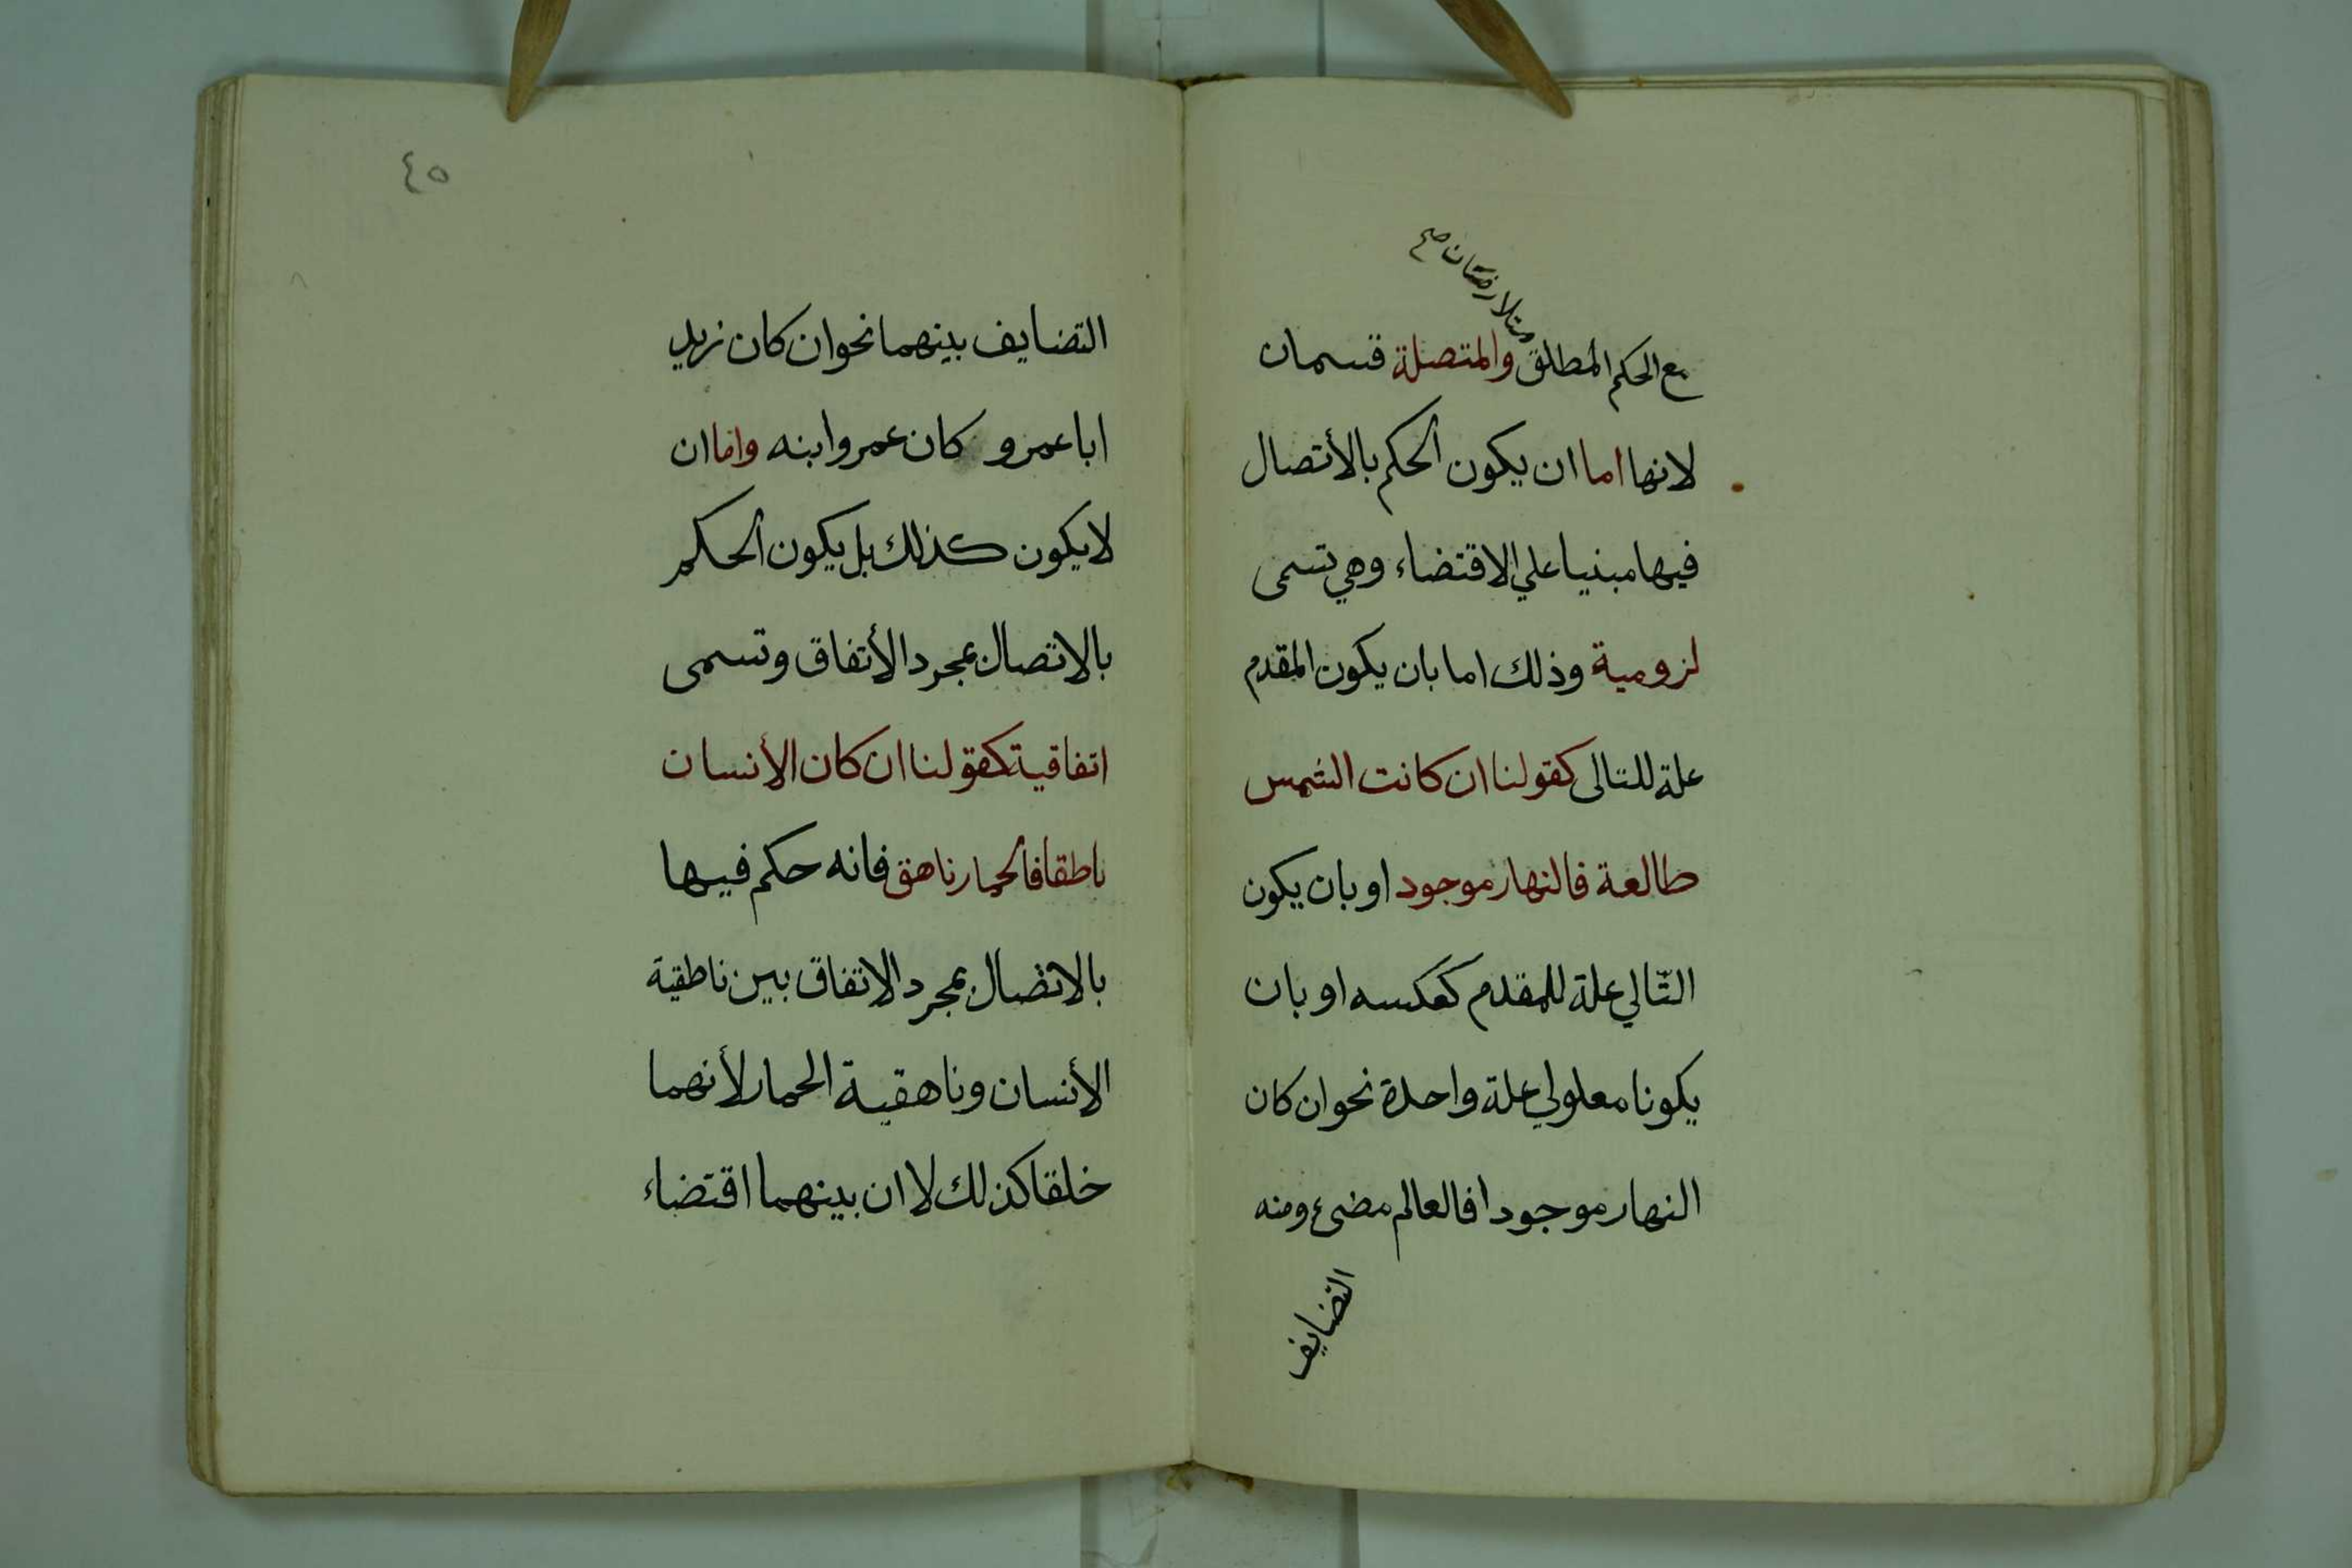 متلازمتان صح
مع الحكم المطلق والمتصلة قسمان
لانها اما ان يكون الحكم بالأتصال
فيها مبنيا علي الاقتضاء وهي تسمى
لزومية وذلك اما بان يكون المقدم
علة للتالى كقولنا ان كانت الشمس
طالعة فالنهار موجود او بان يكون
التّالي علة للمقدم كعكسه او بان
يكونا معلولي علة واحدة نحو ان كان
النهار موجودا فالعالم مضئ ومنه
التضايف
٤٥
التضايف بينهما نحو ان كان زيد
ابا عمرو كان عمرو ابنه واما ان
لا يكون كذلك بل يكون الحكم
بالاتصال بمجرد الأتفاق وتسمى
اتفاقية كقولنا ان كان الأنسان
ناطقا فالحمار ناهق فانه حكم فيها
بالاتصال بمجرد الاتفاق بين ناطقية
الأنسان وناهقية الحمار لأنهما
خلقا كذلك لا ان بينهما اقتضاء